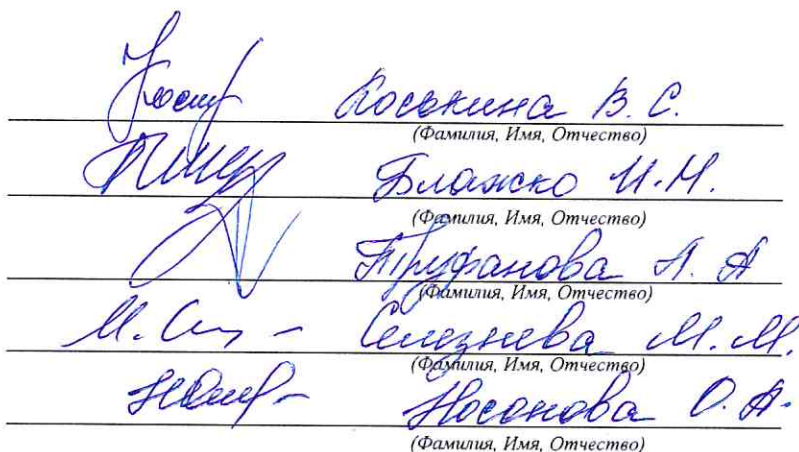 Коськина В. С.
(Фамилия, Имя, Отчество)
Блажко И. М.
(Фамилия, Имя, Отчество)
Труфанова А. А
(Фамилия, Имя, Отчество)
М. Селезнева М. М.
(Фамилия, Имя, Отчество)
Носонова О. А.
(Фамилия, Имя, Отчество)